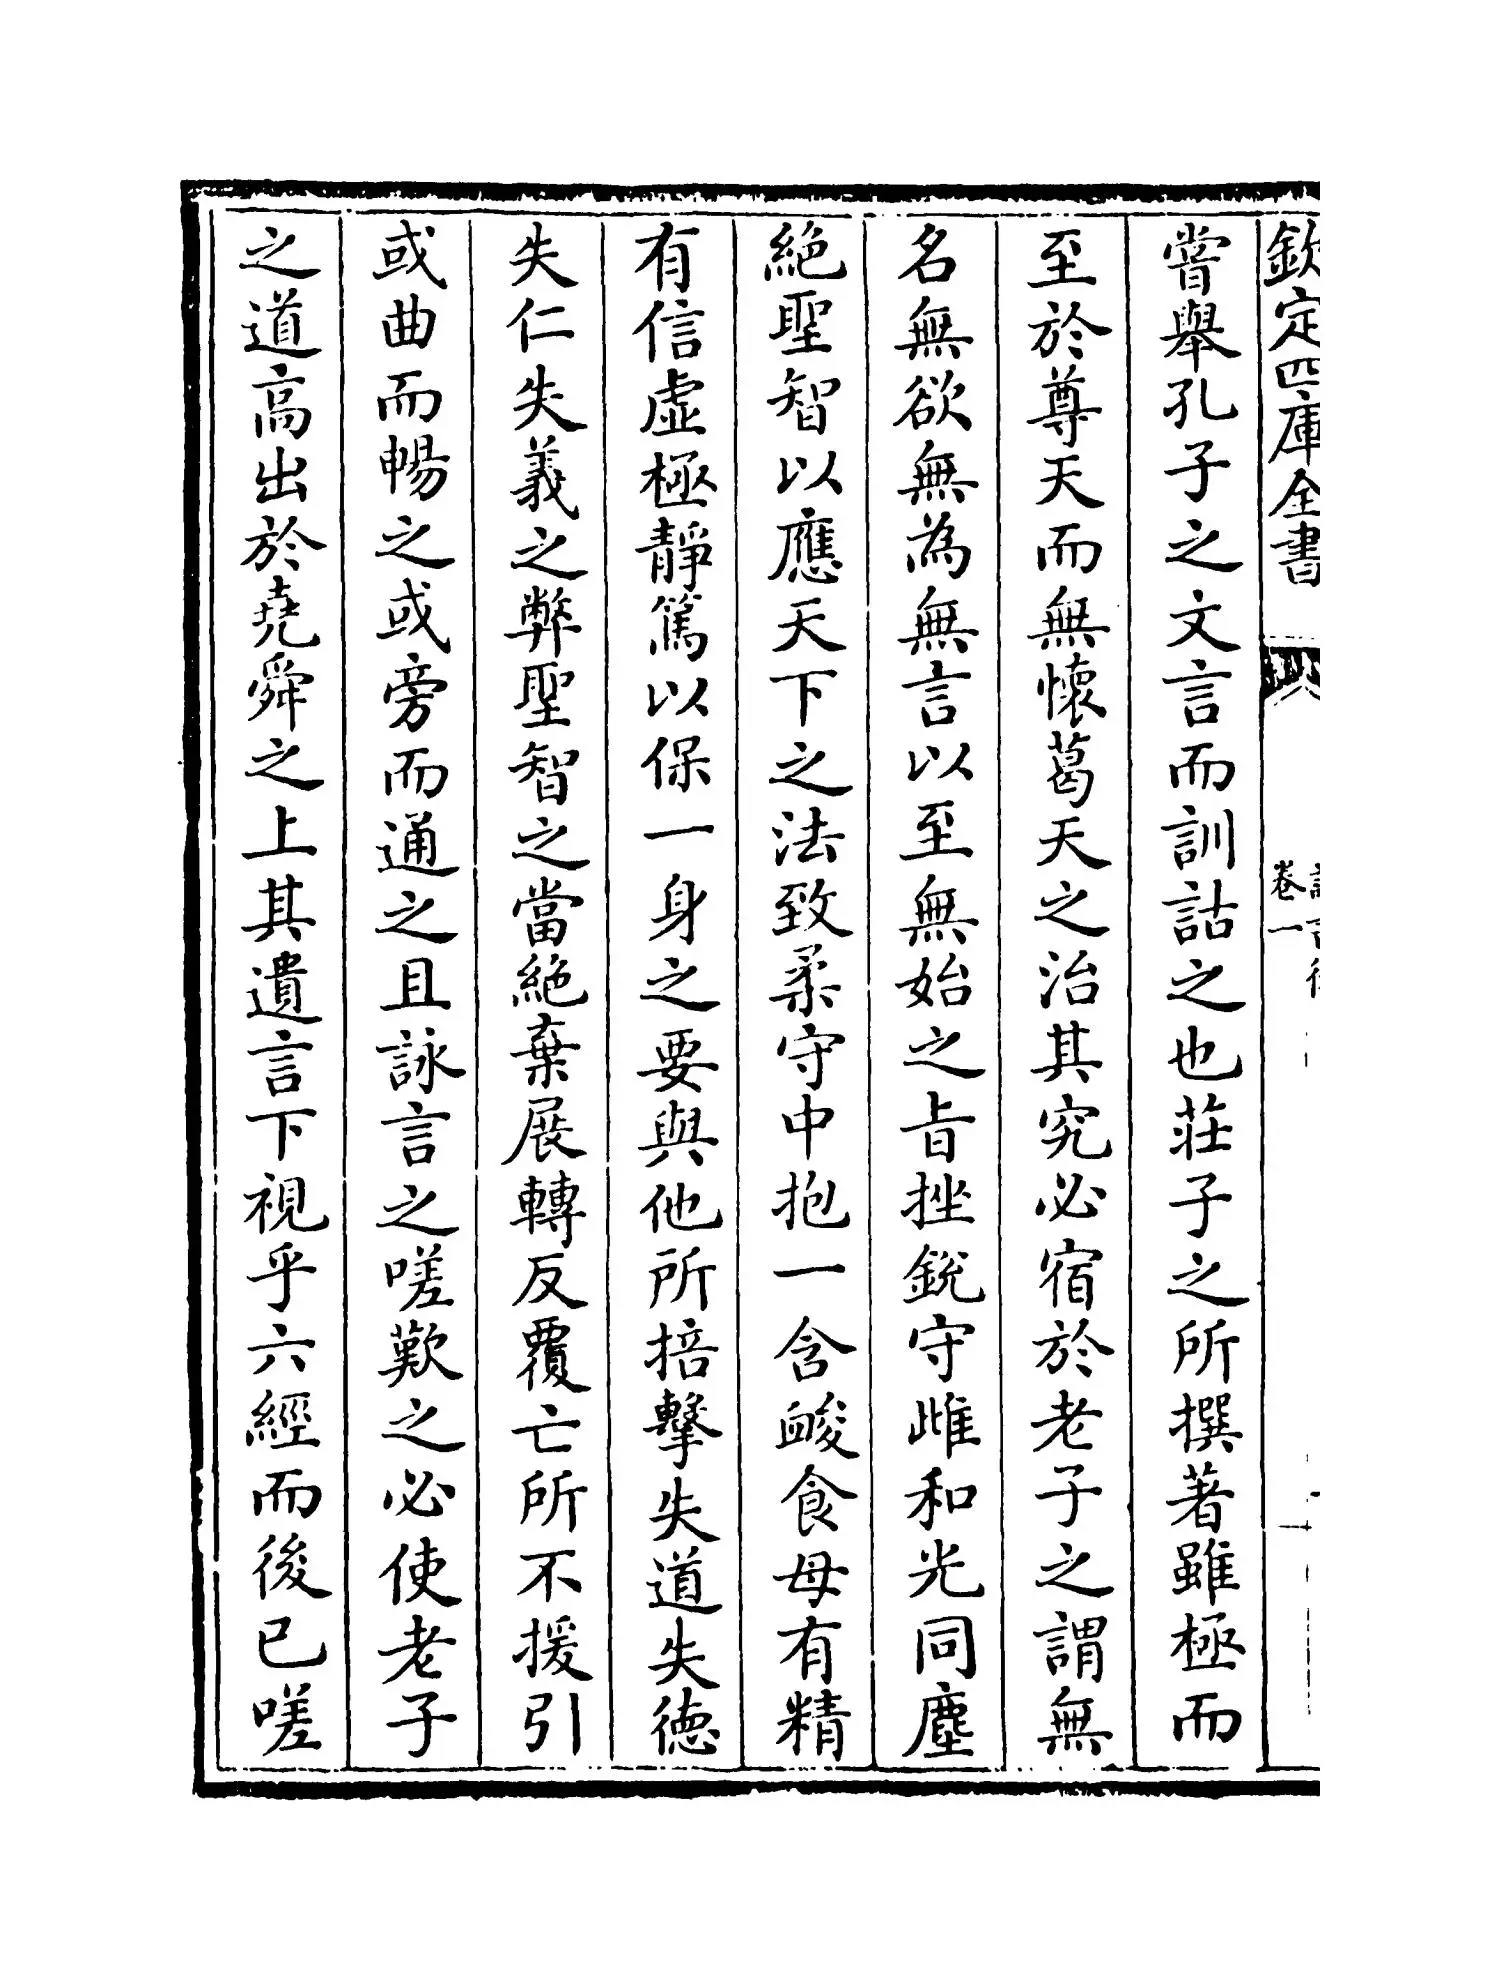 欽定四庫全書
卷一
嘗舉孔子之文言而訓詁之也莊子之所撰著雖極而
至於尊天而無懷葛天之治其究必宿於老子之謂無
名無欲無為無言以至無始之旨挫銳守雌和光同塵
絶聖智以應天下之法致柔守中抱一含㕙食母有精
有信虛極靜篤以保一身之要與他所掊擊失道失德
失仁失義之弊聖智之當絶棄展轉反覆亡所不援引
或曲而暢之或旁而通之且詠言之嗟歎之必使老子
之道高出於堯舜之上其遺言下視乎六經而後已嗟